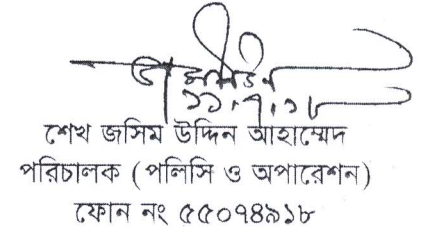 ১১.৭.১৮
শেখ জসিম উদ্দিন আহাম্মেদ
পরিচালক (পলিসি ও অপারেশন)
ফোন নং ৫৫০৭৪৯১৮